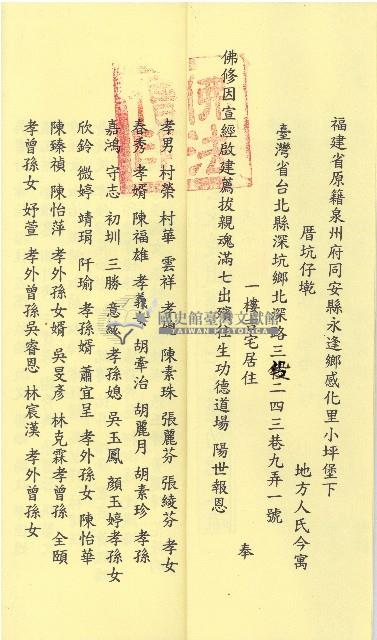 福建省原籍泉州府同安縣永逢鄉感化里小坪堡下
厝坑仔墘 地方人氏今寓
臺灣省台北縣深坑鄉北深路三段二四三巷九弄一號
一樓 宅居住 奉
佛修因宣經啟建薦拔親魂滿七出 往生功德道場 陽世報恩
孝男 村榮 村華 雲祥 孝 陳素珠 張麗芬 張綾芬 孝女
春秀 孝婿 陳福雄 孝義 胡牽治 胡麗月 胡素珍 孝孫
嘉鴻 守志 初圳 三勝 意 孝孫媳 吳玉鳳 顏玉婷 孝孫女
欣鈴 微婷 靖琄 阡瑜 孝孫婿 蕭宜呈 孝外孫女 陳怡華
陳臻禎 陳怡萍 孝外孫女婿 吳旻彥 林克霖 孝曾孫 全頤
孝曾孫女 妤萱 孝外曾孫 吳睿恩 林宸漢 孝外曾孫女
佛法
僧
國史館臺灣文獻館
TAIWAN HISTORICA